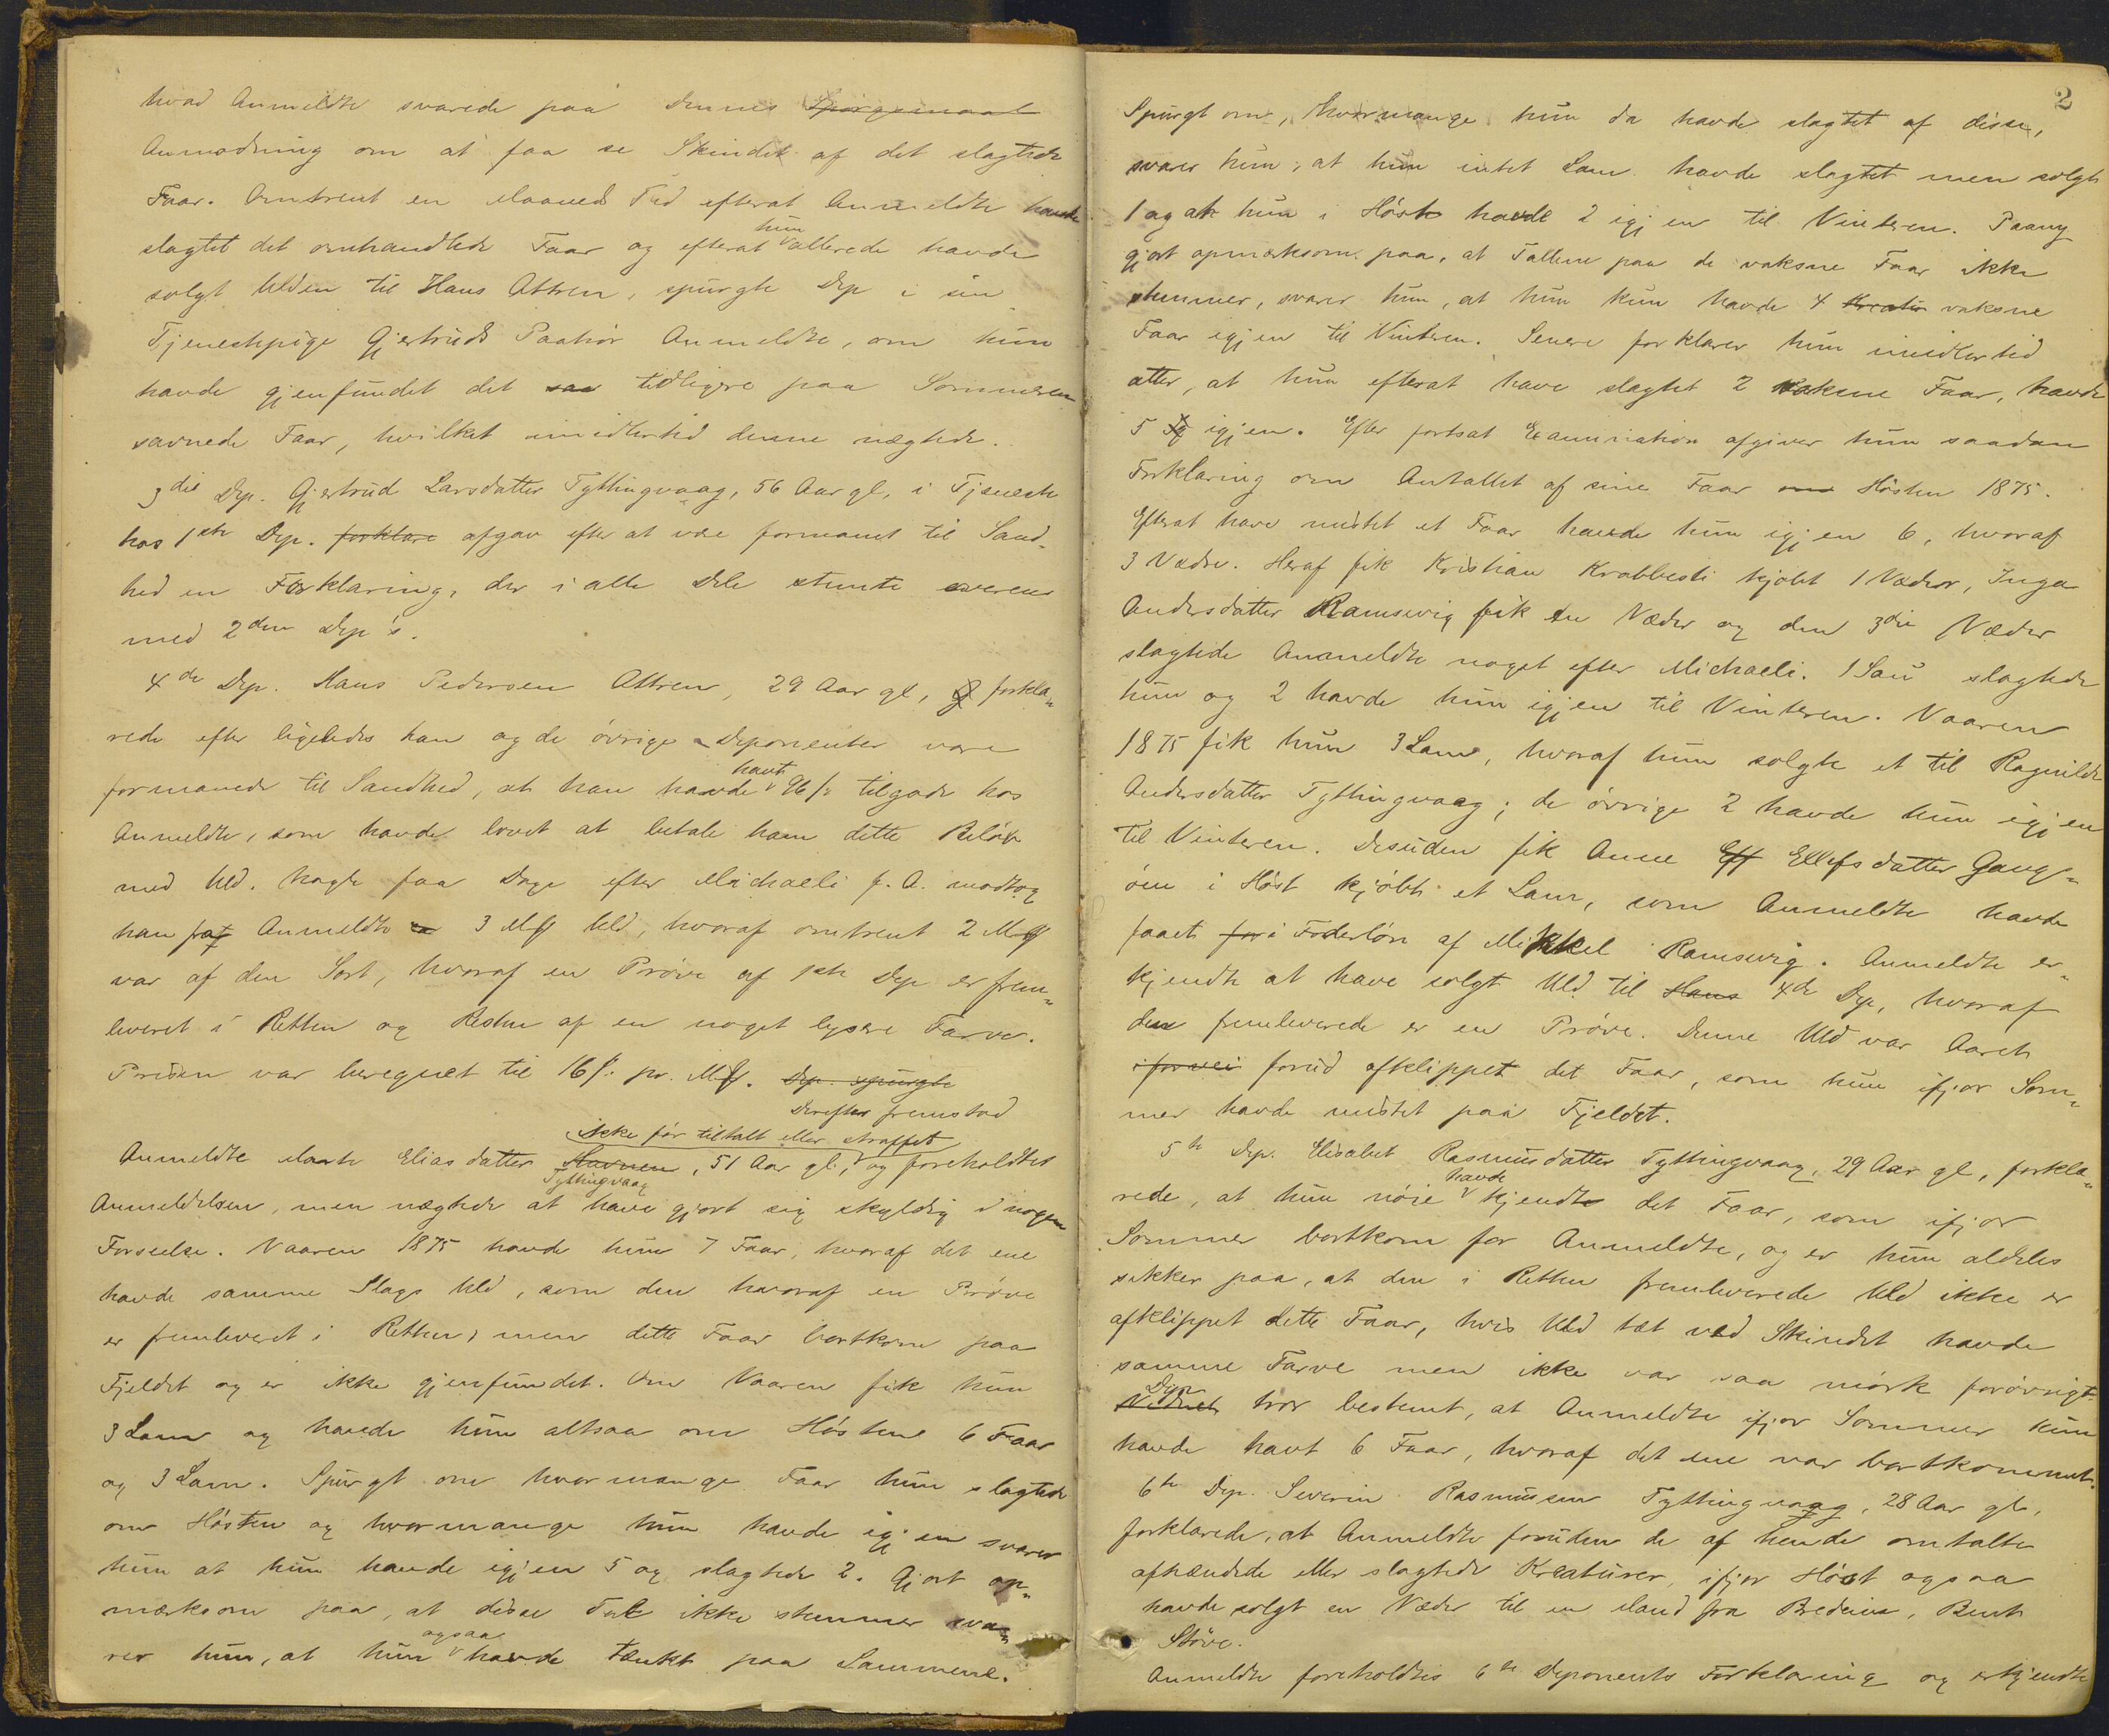 hvad Anmeldte svarede paa dennes Spørgsmaal
Anmodning om at faa se Skindet af det slagtede
Faar. Omtrent en Maaneds Tid efterat Anmeldte havde
slagtet det omhandlede Faar og efterat hun allerede havde
solgt Ulden til Hans Attren, spurgte Dep i sin
Tjenestepige Gjertruds Paahør Anmeldte, om hun
havde gjenfundet det saa tidligere paa Sommeren
savnede Faar, hvilket imidlertid denne nægtede.
3die Dep. Gjertrud Larsdatter Tyttingvaag, 56 Aar gl, i Tjeneste
hos 1ste Dep. forklare afgav efter at være formanet til Sand-
hed en Forklaring, der i alle Dele stemte overens
med 2den Dep's.
4de Dep. Hans Pedersen Attren, 29 Aar gl, forkla-
rede efter ligeledes han og de øvrige Deponenter vare
formanede til Sandhed, at han havde havt 96 s. tilgode hos
Anmeldte, som havde lovet at betale ham dette Beløb
med Uld. Nogle faa Dage efter Michaeli f. A. modtog
han af Anmeldte 3 Mrk Uld, hvoraf omtrent 2 Mrk
var af den Sort, hvoraf en Prøve af 1ste Dep er frem-
leveret i Retten og Resten af en noget lysere Farve.
Prisen var beregnet til 16 s. pr. Mrk. Dep. spurgte
Derefter fremstod
ikke før tiltalt eller straffet
Anmeldte Marte Eliasdatter Havnen, 51 Aar gl., og foreholdtes
Tyttingvaag
Anmeldelsen, men nægtede at have gjort sig skyldig i nogen
Forseelse. Vaaren 1875 havde hun 7 Faar, hvoraf det ene
havde samme Slags Uld, som den hvoraf en Prøve
er fremleveret i Retten, men dette Faar bortkom paa
Fjeldet og er ikke gjenfundet. Om Vaaren fik hun
3 Lam og havde hun altsaa om Høsten 6 Faar
og 3 Lam. Spurgt om hvormange Faar hun slagtede
om Høsten og hvormange hun havde igjen svarer
hun at hun havde igjen 5 og slagtede 2. Gjort op-
mærksom paa, at disse Tal ikke stemmer sva-
rer hun, at hun ogsaa havde tænkt paa Lammene.
2
Spurgt om, hvormange hun da havde slagtet af disse,
svarer hun, at hun intet Lam havde slagtet men solgt
1 og at hun i Høst havde 2 igjen til Vinteren. Paany
gjort opmærksom paa, at Tallene paa de voksne Faar ikke
stemmer, svarer hun, at hun kun havde 4 Kreatur voksne
Faar igjen til Vinteren. Senere forklarer hun imidlertid
atter, at hun efterat have slagtet 2 voksne Faar, havde
5 igjen. Efter fortsat Examination afgiver hun saadan
Forklaring om Antallet af sine Faar om Høsten 1875.
Efterat have mistet et Faar havde hun igjen 6, hvoraf
3 Vædre. Heraf fik Kristian Krabbesti kjøbt 1 Væder, Inga
Andersdatter Ramsvig fik en Væder og den 3die Væder
slagtede Anmeldte noget efter Michaeli. 1 Sau slagtede
hun og 2 havde hun igjen til Vinteren. Vaaren
1875 fik hun 3 Lam, hvoraf hun solgte et til Ragnilde
Andersdatter Tyttingvaag; de øvrige 2 havde hun igjen
til Vinteren. Desuden fik Anne Eff Ellefsdatter Gang-
øen i Høst kjøbt et Lam, som Anmeldte havde
faaet for i Foderløn af Mikkel Ramsvig. Anmeldte er-
kjendte at have solgt Uld til Hans 4de Dep, hvoraf
den fremleverede er en Prøve. Denne Uld var Aaret
iforvei forud afklippet det Faar, som hun ifjor Som-
mer havde mistet paa Fjeldet.
5te Dep. Elisabet Rasmusdatter Tyttingvaag, 29 Aar gl, forkla-
rede, at hun nøie havde kjendt det Faar, som ifjor
Sommer bortkom for Anmeldte, og er hun aldeles
sikker paa, at den i Retten fremleverede Uld ikke er
afklippet dette Faar, hvis Uld tæt ved Skindet havde
samme Farve men ikke var saa mørk forøvrigt.
Vidnet Dep. tror bestemt, at Anmeldte ifjor Sommer kun
havde havt 6 Faar, hvoraf det ene var bortkommet.
6te Dep. Severin Rasmussen Tyttingvaag, 28 Aar gl,
forklarede, at Anmeldte foruden de af hende omtalte
afhændede eller slagtede Kreaturer, ifjor Høst ogsaa
havde solgt en Væder til en Mand fra Bredvin, Bent
Støve.
Anmeldte foreholdtes 6te Deponents Forklaring og erkjendte